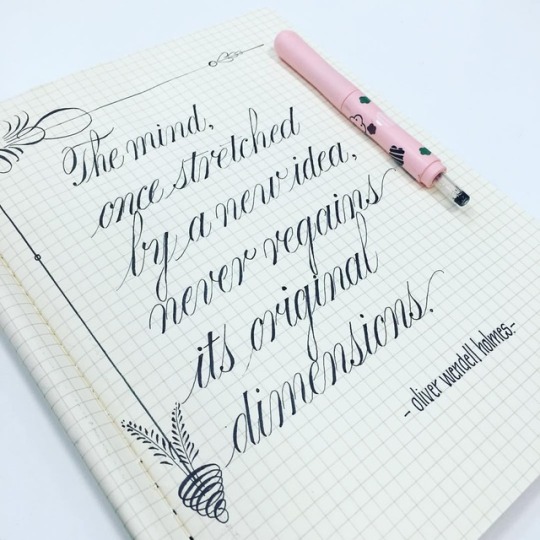 The mind,
once stretched
by a new idea,
never regains
its original
dimensions.
- oliver wendell holmes.-